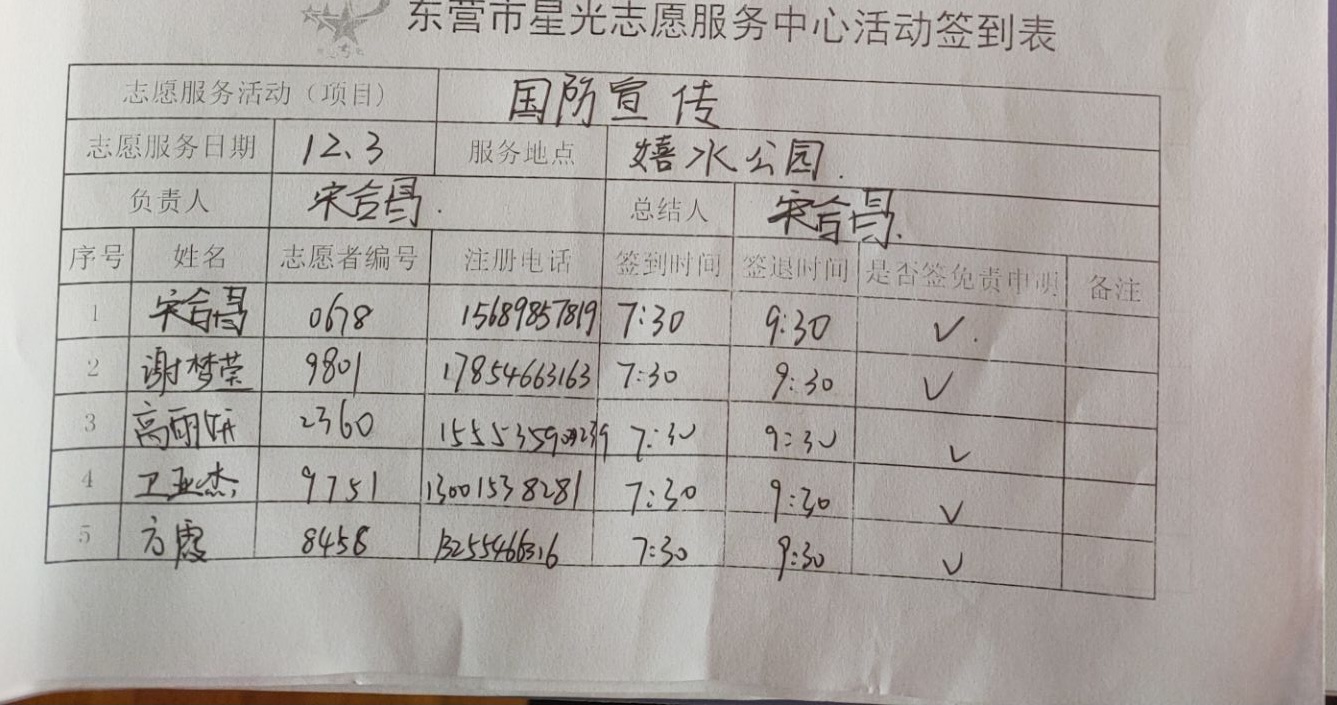 东营市星光志愿服务中心活动签到表
志愿服务活动（项目） 国防宣传
志愿服务日期 12、3 服务地点 嬉水公园.
负责人 宋合昌. 总结人 宋合昌.
序号 姓名 志愿者编号 注册电话 签到时间 签退时间 是否签免责申明 备注
1 宋合昌 0678 15689857819 7:30 9:30 ✓.
2 谢梦荣 9801 17854663163 7:30 9:30 ✓
3 高丽妍 2360 7:30 9:30 ✓
4 卫亚杰 9751 13001538281 7:30 9:30 ✓
5 方霞 8458 13255466316 7:30 9:30 ✓